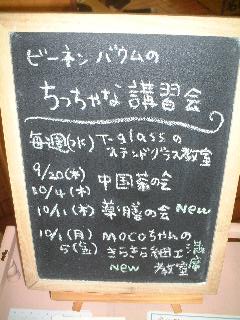 ビーネンバウムの
ちっちゃな講習会
毎週(水) T-glassの
ステンドグラス教室
9/20(木)
10/4(木) 中国茶の会
10/11(木) 薬膳の会 New
10/1(月) mocoちゃんの
5(金) きらきら細工 満席
New 教室